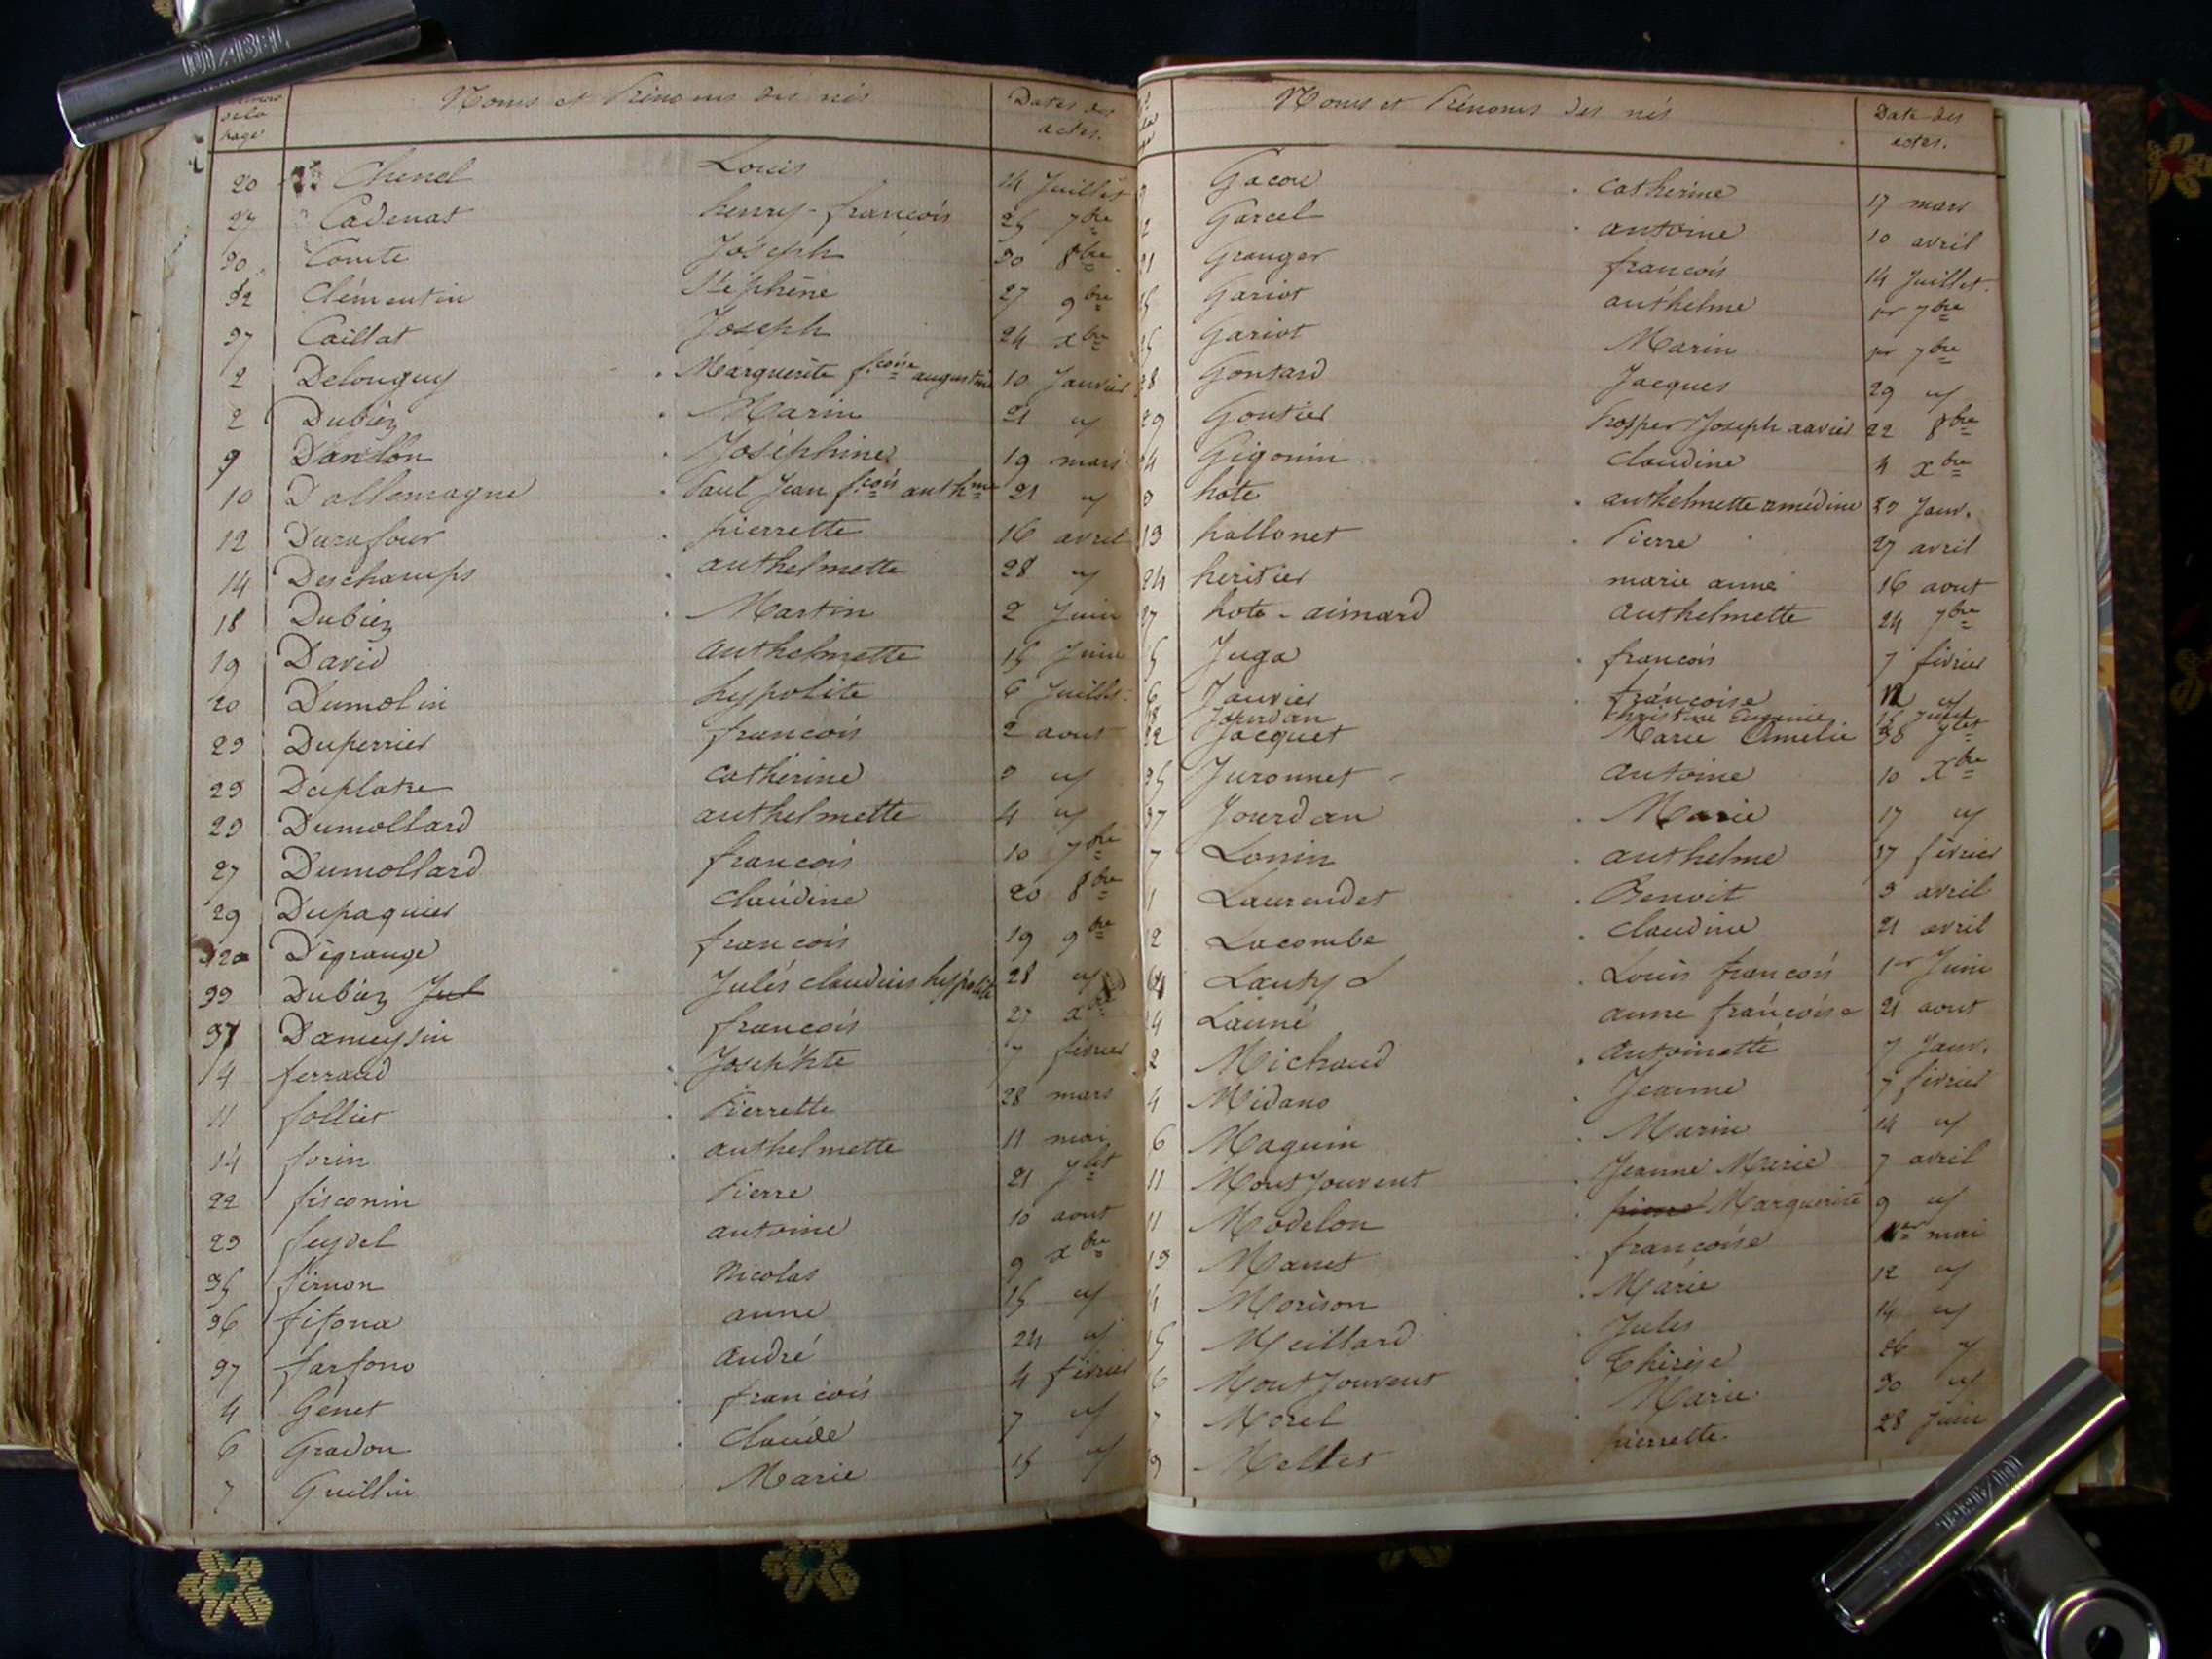 de la
page
Noms et Prénoms des nés
Dates des
actes.
20 Chenel Louis 14 Juillet
27 Cadenat henry-francois 25 7bre
30 Comte Joseph 30 8bre
32 Clémentin Stéphène 27 9bre
37 Caillat Joseph 24 xbre
2 Delonguy Marguerite f.coise augustine 10 Janvier
2 Dubiez Marin 21 "
9 Danklon Joséphine 19 mars
10 Dallemagne Paul Jean f.cois anthme 21 "
12 Durafour pierrette 16 avril
14 Deschamps anthelmette 28 "
18 Dubiez Martin 2 Juin
19 David anthelmette 15 Juin
20 Dumolin hypolite 6 Juillet
23 Duperrier francois 2 aout
23 Duplatre catherine 3 "
23 Dumollard anthelmette 4 "
27 Dumollard francois 10 7bre
29 Dupaquier claudine 20 8bre
32 Dégrange francois 19 9bre
33 Dubiez Jul Jules claudius hypolite 28 "
37 Dameysin francois 27 xbre
4 ferraud Josephte 7 février
11 folliet Pierrette 28 mars
14 forin anthelmette 11 mai
22 fisconin Pierre 21 Jlet
23 feydel antoine 10 aout
35 firmon Nicolas 9 xbre
36 fifona anne 15 "
37 farfono andré 24 "
4 Génet francois 4 février
6 Gradon claude 7 "
7 Guillin Marie 15 "
Noms et Prénoms des nés
Date des
actes.
Gacon catherine 17 mars
Garcel antoine 10 avril
21 Granger francois 14 Juillet
Gariot anthelme 1er 7bre
Gariot Marin 1er 7bre
28 Gonsard Jacques 29 "
29 Goutier Prosper Joseph xavier 22 8bre
34 Gigonin claudine 4 xbre
3 hote anthelmette amédine 23 Janv.
13 hallonet Pierre 27 avril
24 heritier marie anne 16 aout
27 hote-aimard anthelmette 24 7bre
5 Juga francois 7 février
6 Janvier francoise 12 "
18 Jourdan Christine Eugenie 15 Juin
22 Jacquet Marie Amelie 28 Jlet
35 Juronnet antoine 10 Xbre
37 Jourdan Marie 17 "
7 Lonin anthelme 17 février
Laurendet Benoit 3 avril
12 Lacombe claudine 21 avril
Lauty Louis francois 1er Juin
24 Launé anne francoise 21 aout
2 Michaud Antoinette 7 Janv.
4 Midano Jeanne 7 février
6 Maguin Marin 14 "
11 MontJouvent Jeanne Marie 7 avril
11 Modelon Marguerite 9 "
13 Manet francoise 1er mai
14 Morison Marie 12 "
15 Meillard Jules 14 "
16 MontJouvent Thérèse 26 "
7 Morel Marie 30 "
9 Meltet pierrette 28 Juin